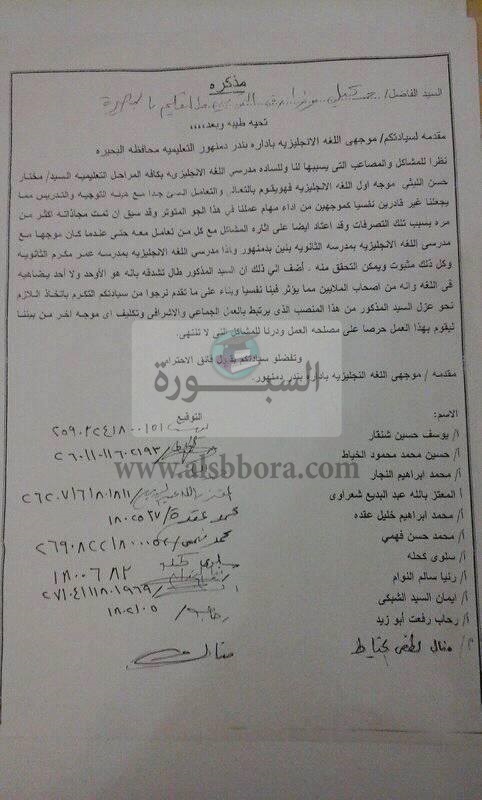 مذكره
السيد الفاضل/
تحيه طيبه وبعد،،،،
مقدمه لسيادتكم/ موجهى اللغه الانجليزيه باداره بندر دمنهور التعليميه محافظه البحيره
نظرا للمشاكل والمصاعب التى يسببها لنا وللساده مدرسي اللغه الانجليزى بكافه المراحل التعليميه السيد/ مختار
حسن الليثي موجه اول اللغه الانجليزيه فهويقوم بالتعالى والتعامل السئ جدا مع هيئه التوجيه والتدريس مما
يجعلنا غير قادرين نفسيا كموجهين من اداء مهام عملنا في هذا الجو المتوتر وقد سبق ان تمت مجازاته اكثر من
مره بسبب تلك التصرفات وقد اعتاد ايضا على اثاره المشاكل مع كل من تعامل معه حتى عندما كان موجها مع
مدرسي اللغه الانجليزيه بمدرسه الثانويه بنين بدمنهور وكذا مدرسي اللغه الانجليزيه بمدرسه عمر مكرم الثانويه
وكل ذلك مثبوت ويمكن التحقق منه . أضف الي ذلك ان السيد المذكور طال تشدقه بانه هو الأوحد ولا أحد يضاهيه
فى اللغه وانه من اصحاب الملايين مما يؤثر فينا نفسيا وبناء على ما تقدم نرجوا من سيادتكم التكرم باتخاذ اللازم
نحو عزل السيد المذكور من هذا المنصب الذى يرتبط بالعمل الجماعي والاشرافى وتكليف اى موجه اخر من بيننا
ليقوم بهذا العمل حرصا على مصلحه العمل ودرنا للمشاكل التى لا تنتهى.
وتفضلو سيادتكم بقبول فائق الاحترام
السبورة
مقدمه / موجهى اللغه النجليزيه باداره بندر دمنهور.
الاسم: التوقيع
أ/ يوسف حسين شنقار
أ/ حسين محمد محمود الخياط
www.alsbbora.com
أ/ محمد ابراهيم النجار
أ/ المعتز بالله عبد البديع شعراوى
أ/ محمد ابراهيم خليل عقده محمد عقدة / ١٨٠٢٥٢٧
أ/ محمد حسن فهمي
أ/ سلوى كحله ١٨٠٠٦٨٢
أ/ رنيا سالم النوام
أ/ ايمان السيد الشبكى
أ/ رحاب رفعت أبو زيد رحاب / ١٨٠٢١٠٥
أ/ منال لطفى منال